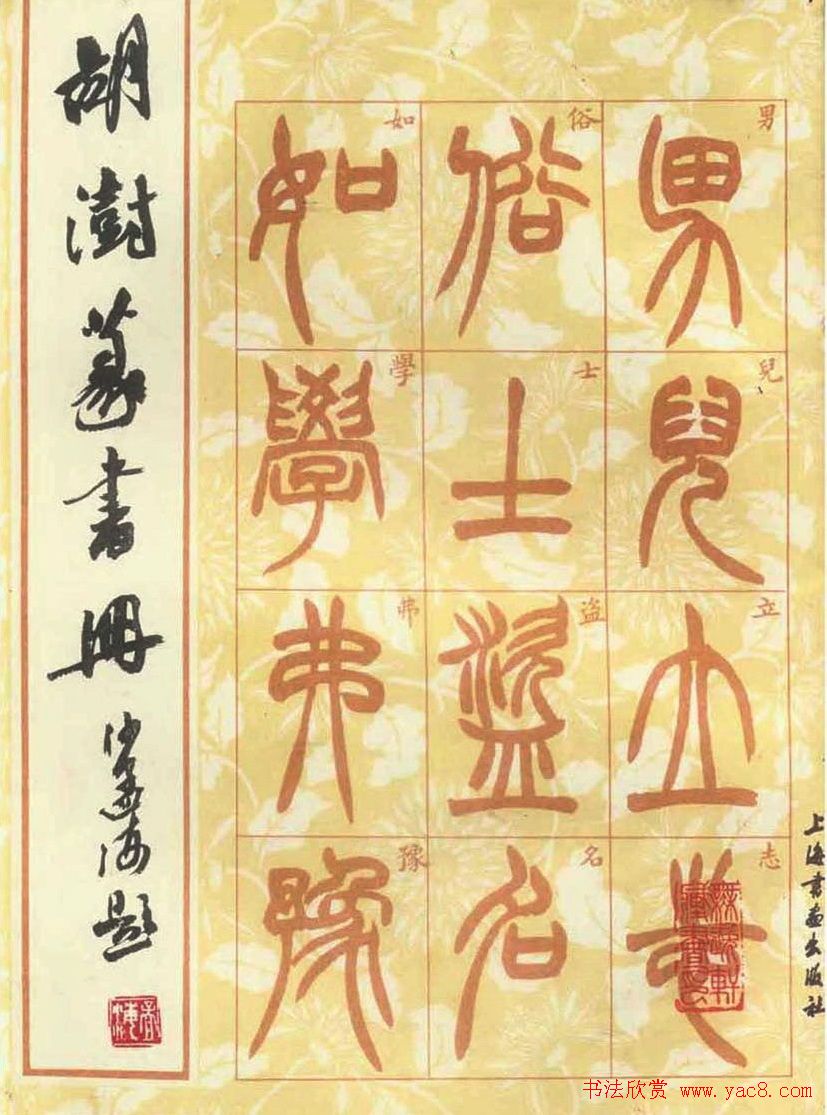 胡澍篆書冊
沙孟海題
男兒立志
俗士盜名
如學弗豫
男
兒
立
志
俗
士
盜
名
如
學
弗
豫
上海書畫出版社
书法欣赏 www.yac8.com